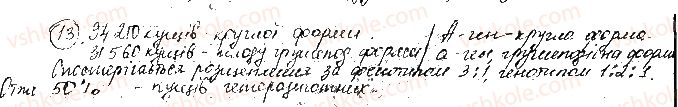 13) 94 210 кущів круглої форми. / А - ген - кругла форма.
31 560 кущів - плоду грушепод. форми / а - ген, грушеподібна форма
Спостерігається розщеплення за фенотипом 3:1, генотипом 1:2:1.
Отже 50% - кущів гетерозиготних.